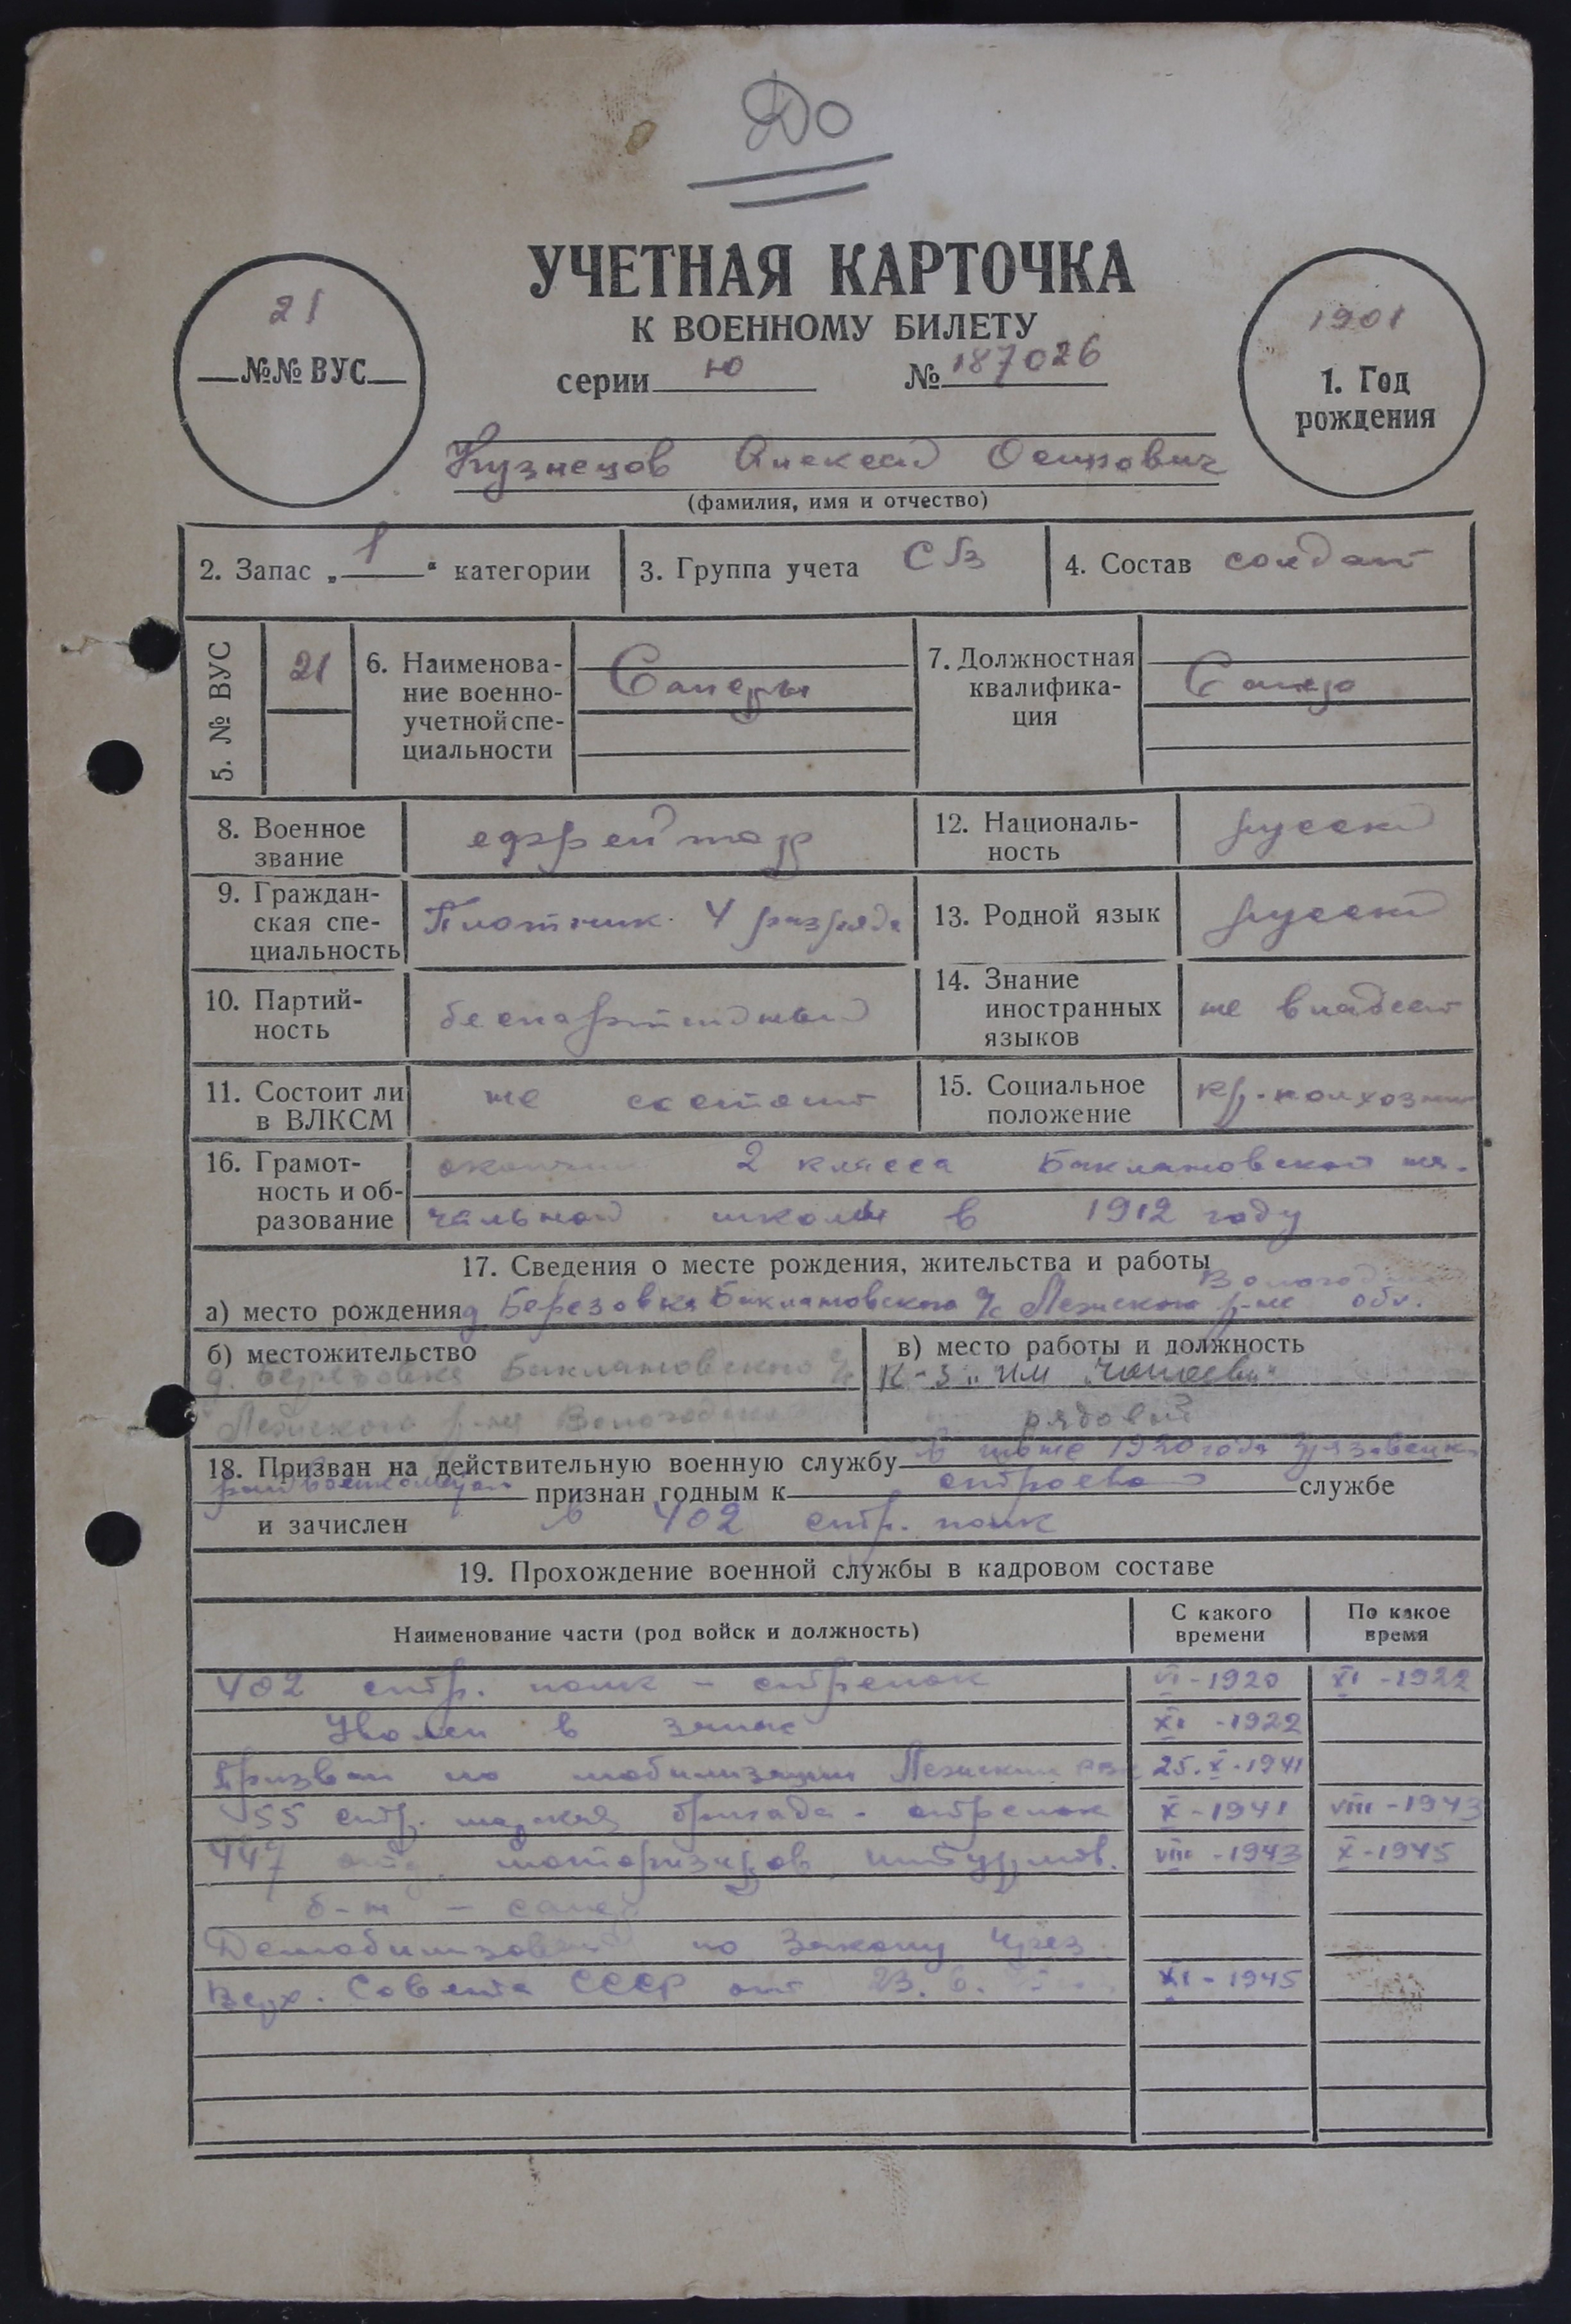 До
УЧЕТНАЯ КАРТОЧКА
К ВОЕННОМУ БИЛЕТУ
серии Ю № 187026
21
№№ ВУС
1901
1. Год
рождения
Кузнецов Алексей Осипович
(фамилия, имя и отчество)
2. Запас „1“ категории
3. Группа учета СВ
4. Состав солдат
5. № ВУС
21
6. Наименова-
ние военно-
учетной спе-
циальности
Саперы
7. Должностная
квалифика-
ция
Сапер
8. Военное
звание
ефрейтор
12. Националь-
ность
русский
9. Граждан-
ская спе-
циальность
Плотник 4 разряда
13. Родной язык
русский
10. Партий-
ность
беспартийный
14. Знание
иностранных
языков
не владеет
11. Состоит ли
в ВЛКСМ
не состоит
15. Социальное
положение
кр-колхозник
16. Грамот-
ность и об-
разование
окончил 2 класса Баклановской на-
чальной школы в 1912 году
17. Сведения о месте рождения, жительства и работы
а) место рождения д. Березовка Баклановского с/с Лежского р-на Вологодской обл.
б) местожительство
д. Березовка Баклановского с/с
Лежского р-на Вологодской
в) место работы и должность
К-з „им Чапаева“
рядовой
18. Призван на действительную военную службу в июне 1920 года Грязовецк.
райвоенкоматом признан годным к строевой службе
и зачислен в 402 стр. полк
19. Прохождение военной службы в кадровом составе
Наименование части (род войск и должность)
С какого
времени
По какое
время
402 стр. полк – стрелок VI-1920 XI-1922
Уволен в запас XI-1922
Призван по мобилизации Лежским РВК 25.X-1941
55 стр. морская бригада - стрелок X-1941 VIII-1943
447 отд. моторизиров. штурмов. VIII-1943 X-1945
б-н – сапер
Демобилизован по Закону През.
Верх. Совета СССР от 23.6. XI-1945